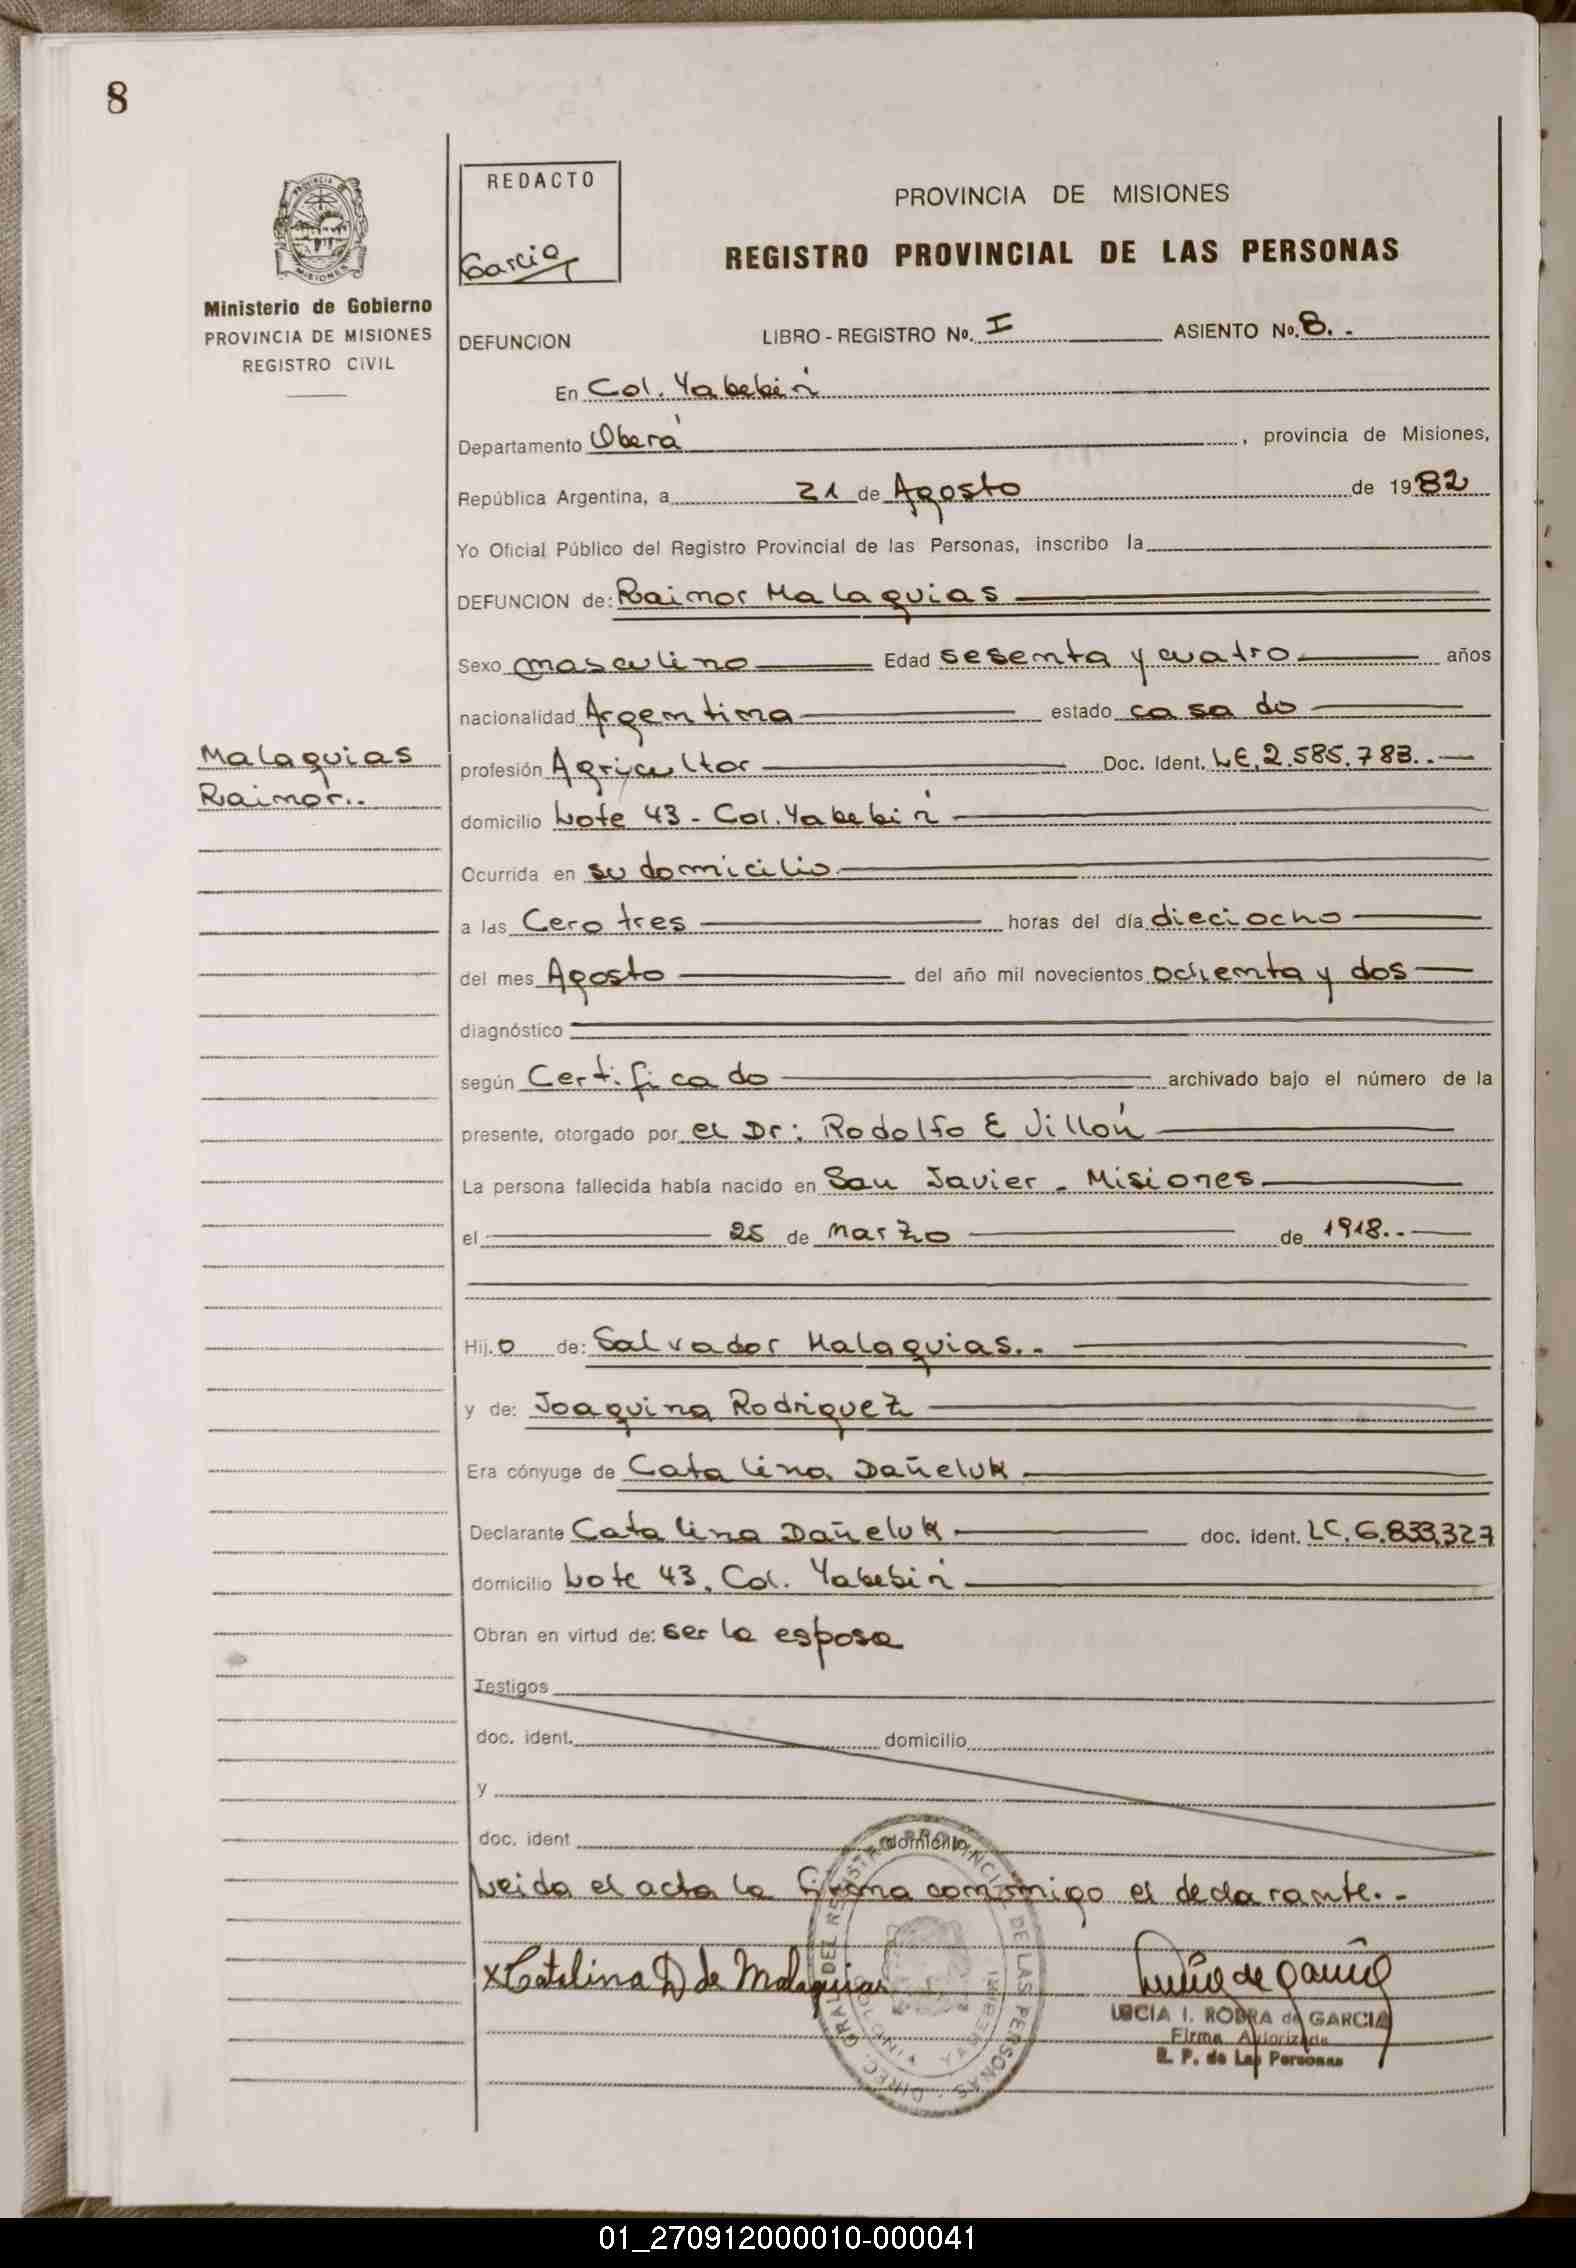 8
REDACTO
Garcia
PROVINCIA DE MISIONES
REGISTRO PROVINCIAL DE LAS PERSONAS
Ministerio de Gobierno
PROVINCIA DE MISIONES
REGISTRO CIVIL
DEFUNCION LIBRO - REGISTRO No. I ASIENTO No. 8. -
En Col. Yabebirí
Departamento Oberá, provincia de Misiones,
República Argentina, a 21 de Agosto de 1982
Yo Oficial Público del Registro Provincial de las Personas, inscribo la
DEFUNCION de: Raimor Malaquias
Sexo masculino Edad sesenta y cuatro años
nacionalidad Argentina estado casado
Malaquias
Raimor..
profesión Agricultor Doc. Ident. LE. 2.585.783..-
domicilio Lote 43 - Col. Yabebirí
Ocurrida en su domicilio
a las Cero tres horas del día dieciocho
del mes Agosto del año mil novecientos ochenta y dos
diagnóstico
según Certificado archivado bajo el número de la
presente, otorgado por el Dr: Rodolfo E Villón
La persona fallecida había nacido en San Javier - Misiones
el 25 de Marzo de 1918..-
Hij.o de: Salvador Malaquias..
y de: Joaquina Rodriguez
Era cónyuge de Catalina Dañeluk
Declarante Catalina Dañeluk doc. ident. LC. 6.833.327
domicilio Lote 43. Col. Yabebirí
Obran en virtud de: ser la esposa
Testigos
doc. ident. domicilio
y
doc. ident domicilio
Leida el acta la firma conmigo el declarante. -
x Catalina D de Malaquias
DIREC. GRAL. DEL REGISTRO PROVINCIAL DE LAS PERSONAS
YABEBIRI
LUCIA I. RODRA de GARCIA
Firma Autorizada
R. P. de Las Personas
01_270912000010-000041